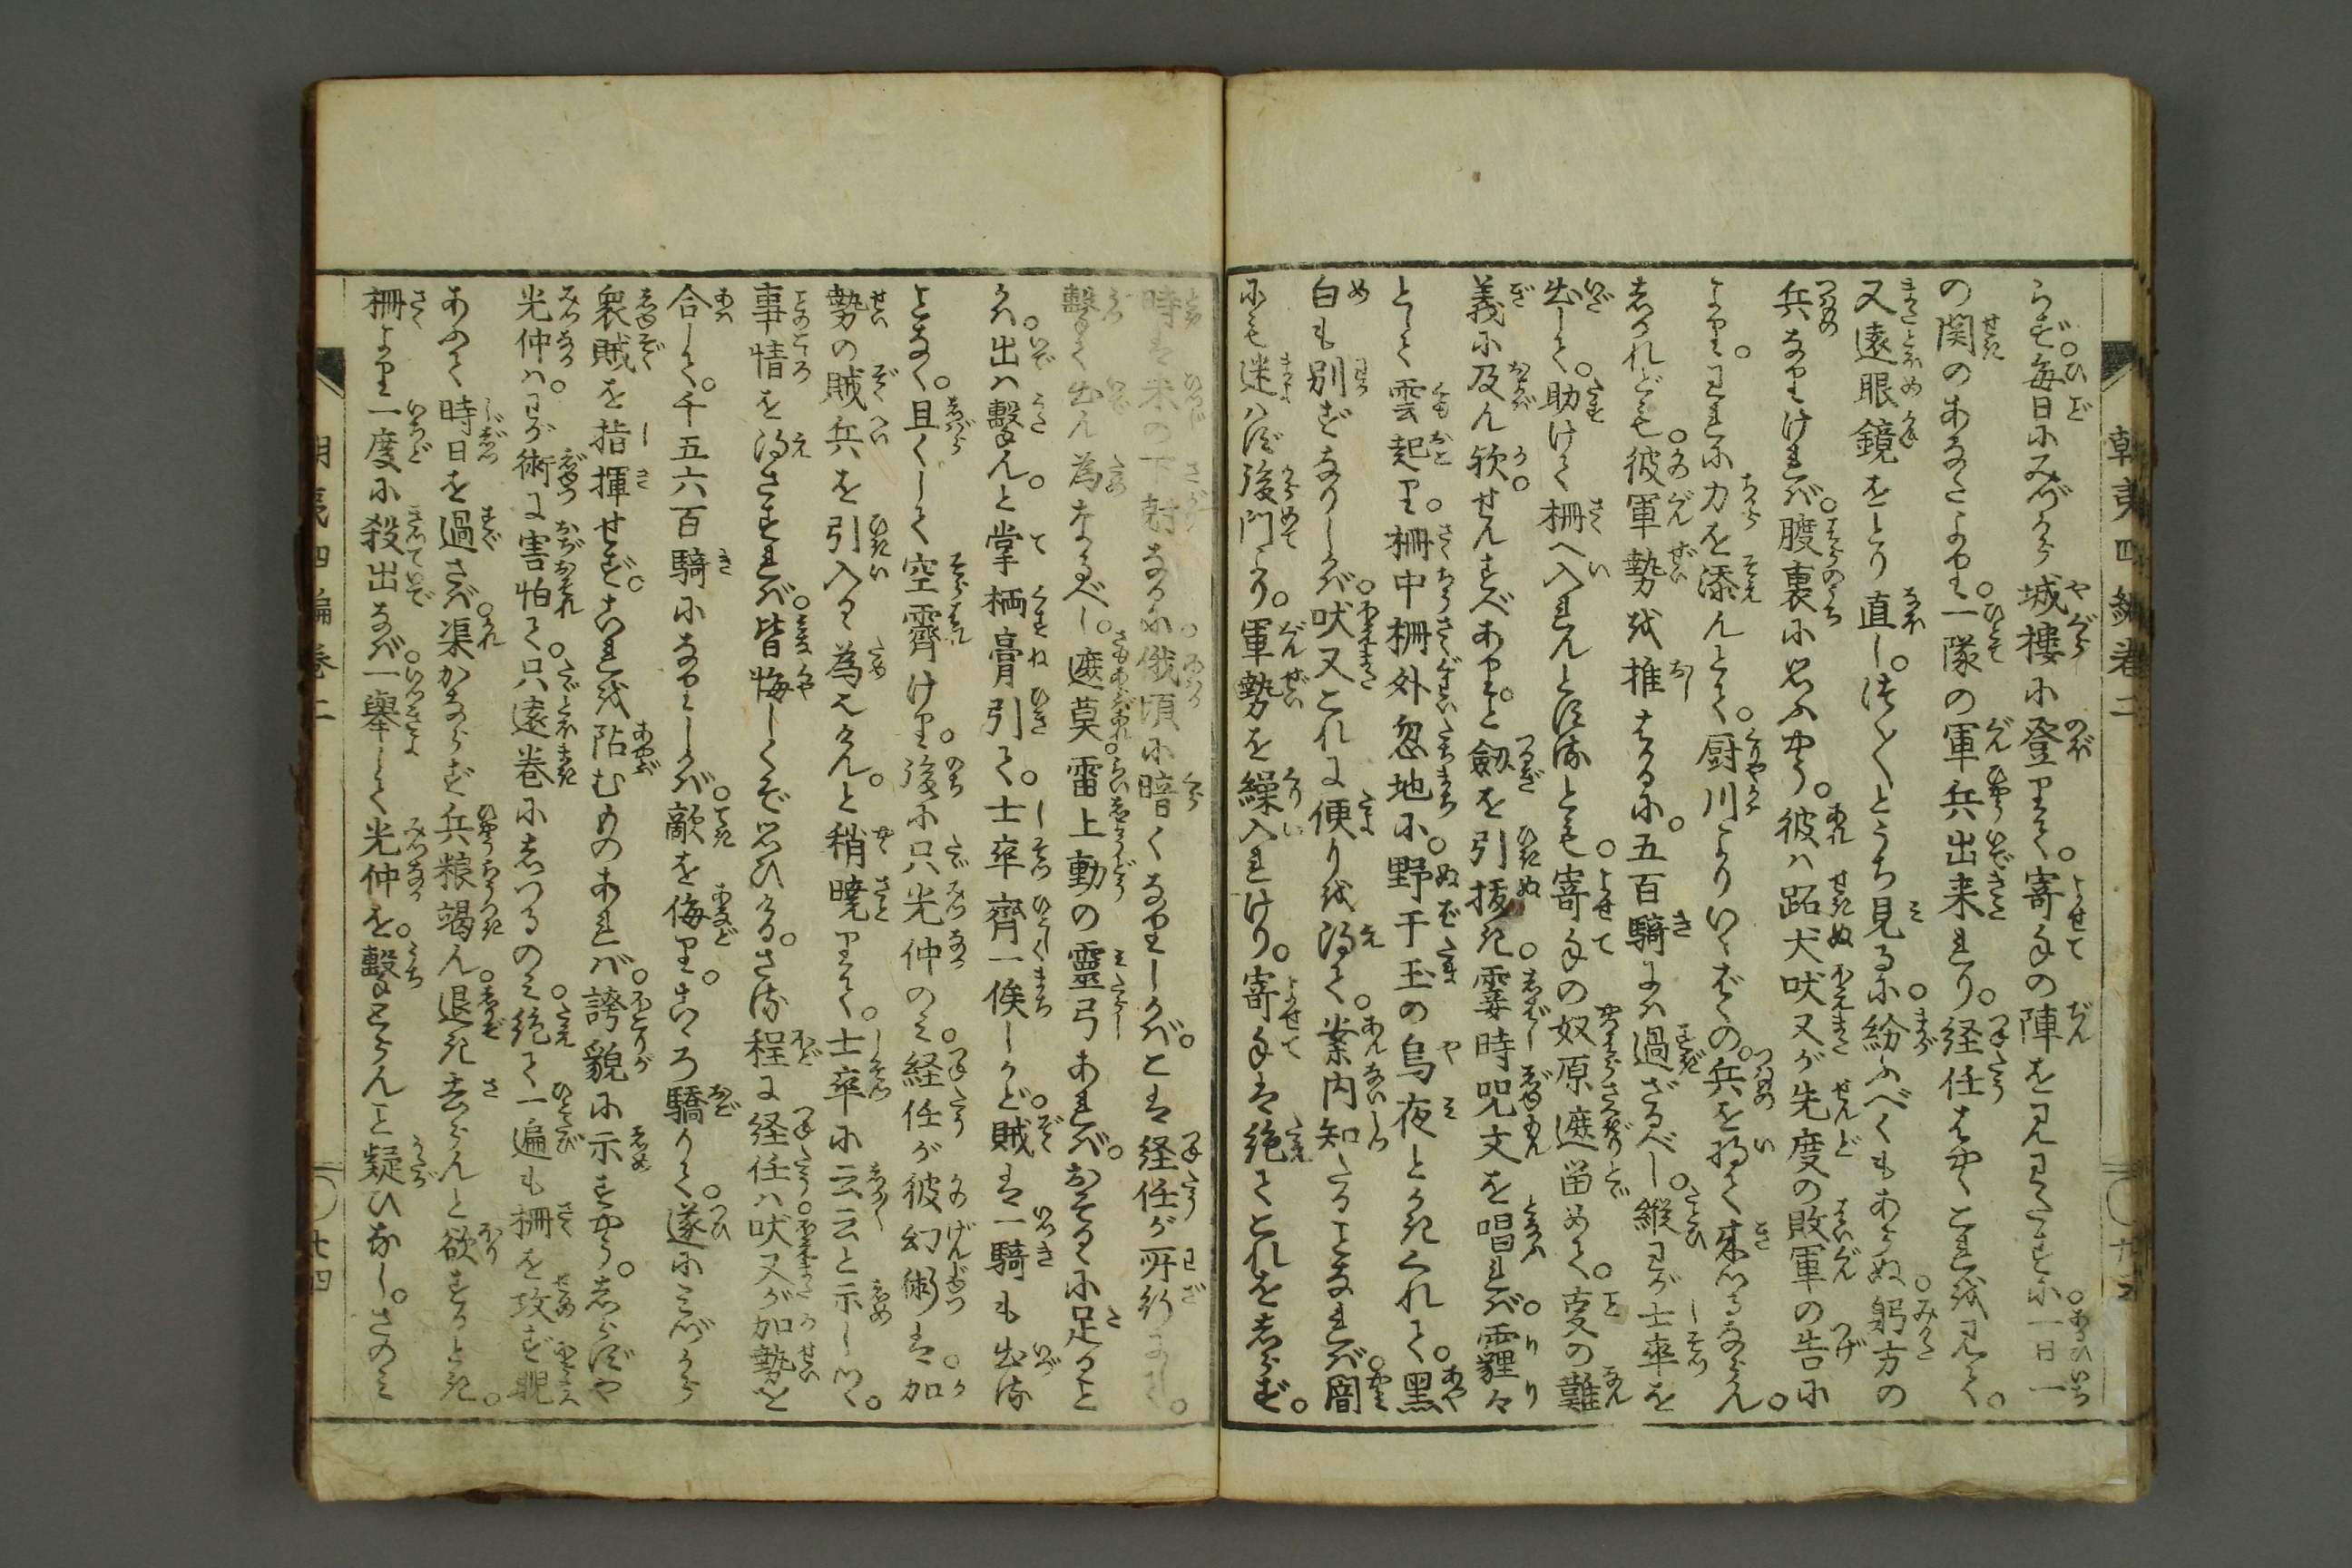 朝夷四編巻二
らず。毎日にみづから城樓に登りて。寄手の陣を見わたすに。一日一
の関のあなたより。一隊の軍兵出来れり。経任はやくこれを見て。
又遠眼鏡をとり直し。つく〴〵とうち見るに。紛ふべくもあらぬ。躬方の
兵なりければ。腹裏に思ふやう。彼は跖犬吠又が先度の敗軍の告に
より。われに力を添んとて。厨川よりいくばくの。兵を将て来つるならん。
しかれども。彼軍勢を推はかるに。五百騎には過ざるべし。縦わが士卒を
出して。助けて柵へ入れんとするとも。寄手の奴原遮留めて。事の難
義に及ん歟。せんすべあり。と劔を引抜き。霎時咒文を唱れば。霾々
として雲起り。柵中柵外忽地に。野干玉の烏夜とかきくれて。黒
白も別ずなりしかば。吠又これに便りを得て。案内知たることなれば。闇
にも迷はず後門より。軍勢を繰入れけり。寄手は絶てこれをしらず。
時は未の下尅なるに。俄頃に暗くなりしかば。こは経任が所行にして。
撃て出ん為なるべし。遮莫雷上動の靈弓あれば。おそるゝに足らと
らは。出ば撃んと掌柄膏引て。士卒齊一俟しかど。賊は一騎も出ず
となく。且くして空霽けり。後に只光仲のみ。経任が彼幻術は。加
勢の賊兵を引入るゝ為にてかくせん。と稍曉りて。士卒に云云と示しつゝ。
事情を得さすれば。皆悔しくぞ思ひける。さる程に経任は吠又が加勢を
合して。千五六百騎になりしかば。敵を侮り。こゝろ驕りて。遂にみづから
衆賊を指揮せず。これを阽むものあれば。誇貌に示すやう。しらずや
光仲は。わが術に害怕て。只遠巻にしつるのみ。絶て一遍も柵を攻ず。
あふて時日を過さば。渠かならず兵粮竭ん。退き去らんと欲するとき。
柵より一度に殺出なば。一擧して光仲を。撃とらんこと疑ひなし。さのみ
朝夷四編巻二